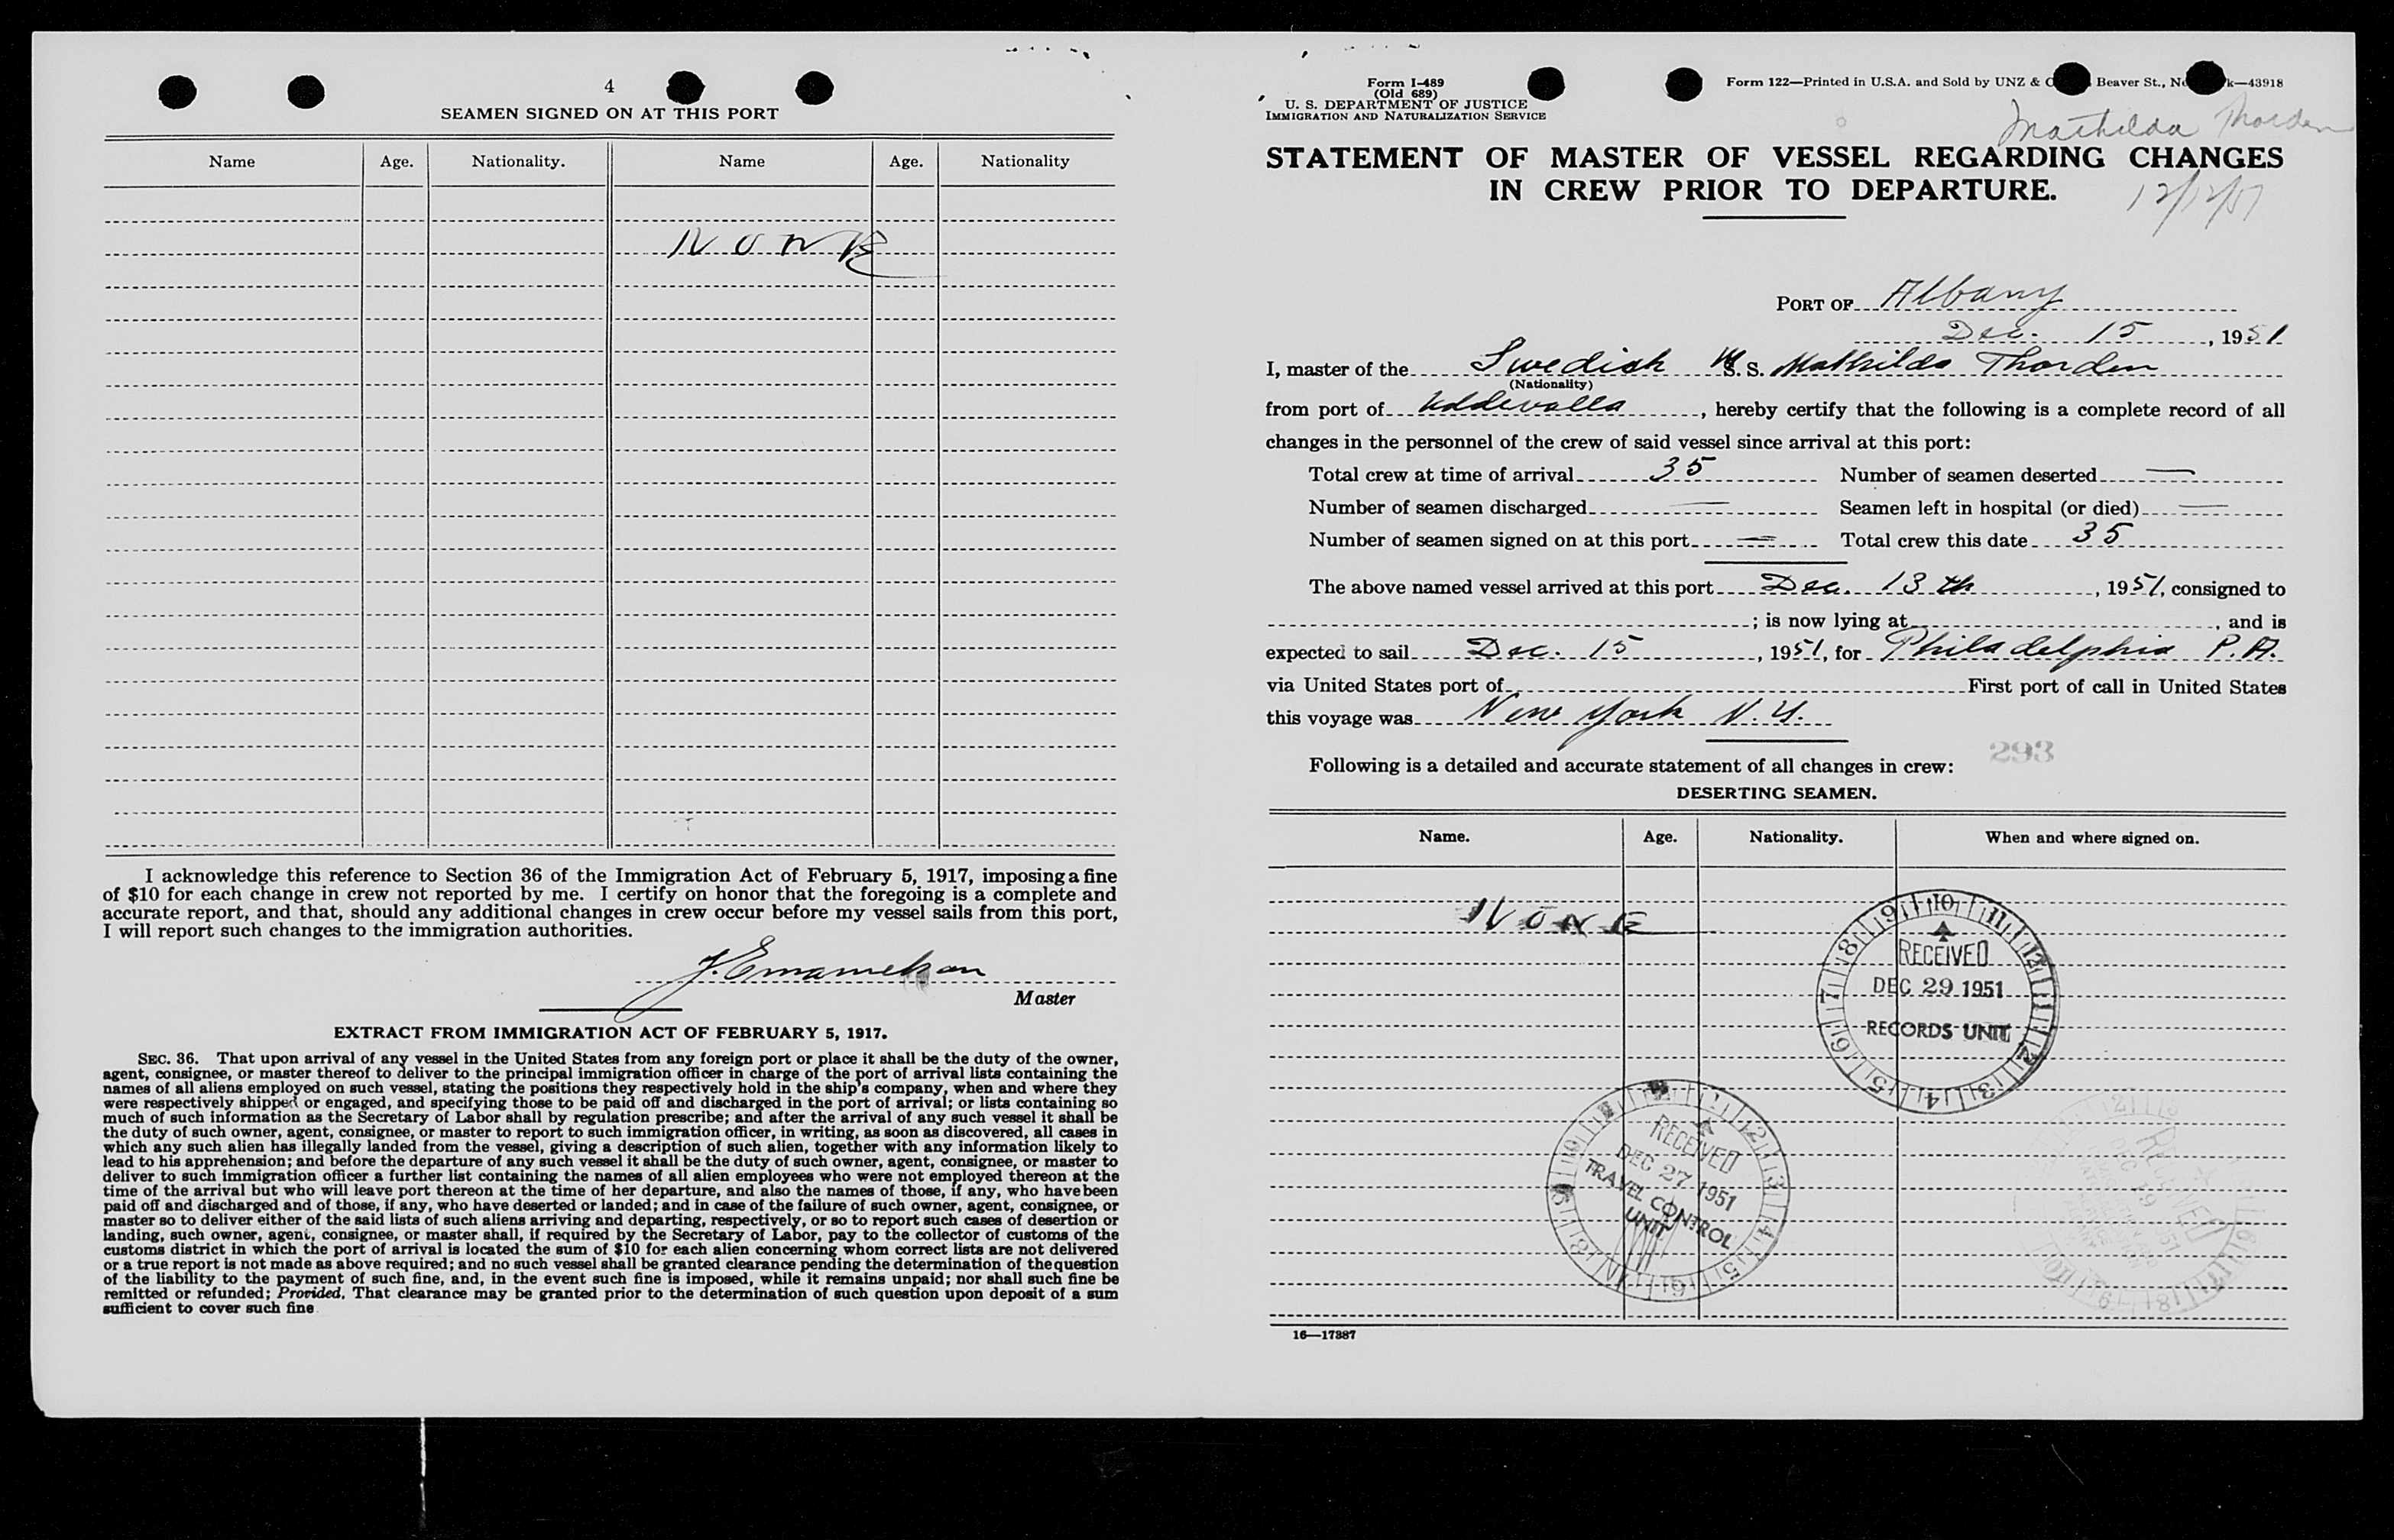 4
SEAMEN SIGNED ON AT THIS PORT
Name Age. Nationality. Name Age. Nationality
NONE
I acknowledge this reference to Section 36 of the Immigration Act of February 5, 1917, imposing a fine
of $10 for each change in crew not reported by me. I certify on honor that the foregoing is a complete and
accurate report, and that, should any additional changes in crew occur before my vessel sails from this port,
I will report such changes to the immigration authorities.
Master
EXTRACT FROM IMMIGRATION ACT OF FEBRUARY 5, 1917.
SEC. 36. That upon arrival of any vessel in the United States from any foreign port or place it shall be the duty of the owner,
agent, consignee, or master thereof to deliver to the principal immigration officer in charge of the port of arrival lists containing the
names of all aliens employed on such vessel, stating the positions they respectively hold in the ship's company, when and where they
were respectively shipped or engaged, and specifying those to be paid off and discharged in the port of arrival; or lists containing so
much of such information as the Secretary of Labor shall by regulation prescribe; and after the arrival of any such vessel it shall be
the duty of such owner, agent, consignee, or master to report to such immigration officer, in writing, as soon as discovered, all cases in
which any such alien has illegally landed from the vessel, giving a description of such alien, together with any information likely to
lead to his apprehension; and before the departure of any such vessel it shall be the duty of such owner, agent, consignee, or master to
deliver to such immigration officer a further list containing the names of all alien employees who were not employed thereon at the
time of the arrival but who will leave port thereon at the time of her departure, and also the names of those, if any, who have been
paid off and discharged and of those, if any, who have deserted or landed; and in case of the failure of such owner, agent, consignee, or
master so to deliver either of the said lists of such aliens arriving and departing, respectively, or so to report such cases of desertion or
landing, such owner, agent, consignee, or master shall, if required by the Secretary of Labor, pay to the collector of customs of the
customs district in which the port of arrival is located the sum of $10 for each alien concerning whom correct lists are not delivered
or a true report is not made as above required; and no such vessel shall be granted clearance pending the determination of the question
of the liability to the payment of such fine, and, in the event such fine is imposed, while it remains unpaid; nor shall such fine be
remitted or refunded; Provided, That clearance may be granted prior to the determination of such question upon deposit of a sum
sufficient to cover such fine
Form I-489
(Old 689)
U. S. DEPARTMENT OF JUSTICE
IMMIGRATION AND NATURALIZATION SERVICE
Form 122—Printed in U.S.A. and Sold by UNZ & Beaver St., —43918
Mathilda Thorden
STATEMENT OF MASTER OF VESSEL REGARDING CHANGES
IN CREW PRIOR TO DEPARTURE.
12/12/51
PORT OF Albany
Dec. 15, 1951
I, master of the Swedish M. S. Mathilda Thorden
(Nationality)
from port of Uddevalla, hereby certify that the following is a complete record of all
changes in the personnel of the crew of said vessel since arrival at this port:
Total crew at time of arrival 35 Number of seamen deserted —
Number of seamen discharged — Seamen left in hospital (or died) —
Number of seamen signed on at this port — Total crew this date 35
The above named vessel arrived at this port Dec. 13 th, 1951, consigned to
; is now lying at , and is
expected to sail Dec. 15, 1951, for Philadelphia P.A.
via United States port of First port of call in United States
this voyage was New York N.Y.
293
Following is a detailed and accurate statement of all changes in crew:
DESERTING SEAMEN.
Name. Age. Nationality. When and where signed on.
NONE
RECEIVED
DEC 29 1951
RECORDS UNIT
RECEIVED
DEC 27 1951
TRAVEL CONTROL
UNIT
16—17387